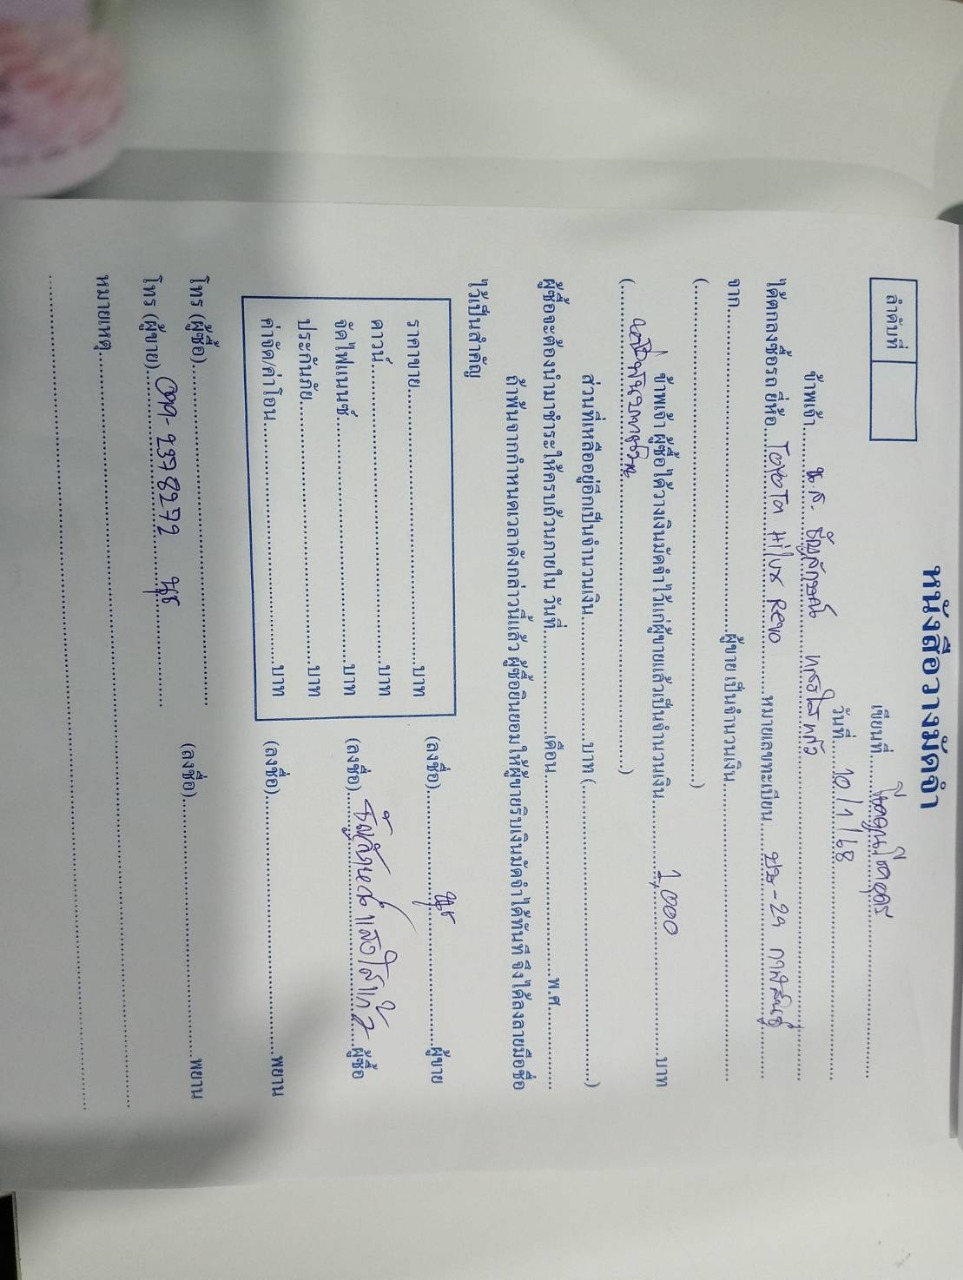 หนังสือวางมัดจำ
ลำดับที่
เขียนที่
วันที่ 10/1/68
ข้าพเจ้า น.ส. ธัญลักษณ์
ได้ตกลงซื้อรถ ยี่ห้อ TOYOTA Hilux Revo หมายเลขทะเบียน กาฬสินธุ์
จาก ผู้ขาย เป็นจำนวนเงิน
( )
ข้าพเจ้า ผู้ซื้อได้วางเงินมัดจำไว้แก่ผู้ขายแล้วเป็นจำนวนเงิน 1,000 บาท
( หนึ่งพันบาทถ้วน )
ส่วนที่เหลืออยู่อีกเป็นจำนวนเงิน บาท ( )
ผู้ซื้อจะต้องนำมาชำระให้ครบถ้วนภายใน วันที่ เดือน พ.ศ.
ถ้าพ้นจากกำหนดเวลาดังกล่าวนี้แล้ว ผู้ซื้อยินยอมให้ผู้ขายริบเงินมัดจำได้ทันที จึงได้ลงลายมือชื่อ
ไว้เป็นสำคัญ
ราคาขาย บาท
ดาวน์ บาท
จัดไฟแนนซ์ บาท
ประกันภัย บาท
ค่าจัด/ค่าโอน บาท
(ลงชื่อ) นุช ผู้ขาย
(ลงชื่อ) ผู้ซื้อ
(ลงชื่อ) พยาน
โทร (ผู้ซื้อ) (ลงชื่อ) พยาน
โทร (ผู้ขาย) นุช
หมายเหตุ